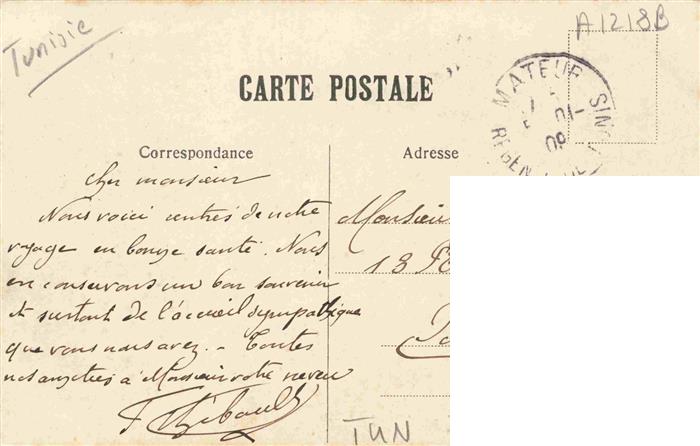 Tunisie
A1218B
CARTE POSTALE
MATEUR
Correspondance
Adresse
cher monsieur
Nous voici rentrés de notre
voyage en bonne santé. Nous
en conservons un bon souvenir
et surtout de l'accueil sympathique
que vous nous avez. - Toutes
nos amitiés à Monsieur votre neveu
F Thibault
Monsieur
13
TUN